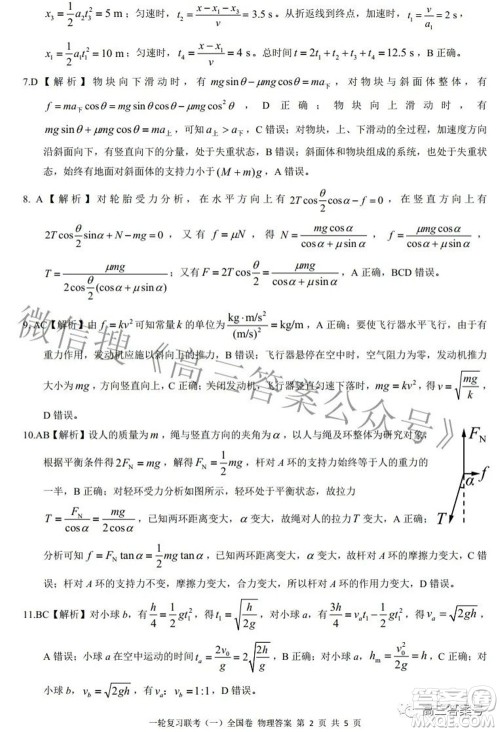 x₃ = 1/2 a₂t₃² = 5 m；匀速时，t₂ = (x − x₃ − x₁)/v = 3.5 s。从折返线到终点，加速时，t₁ = v/a₁ = 2 s，
x₃ = 1/2 a₁t₁² = 10 m；匀速时，t₄ = (x − x₁)/v = 4 s。总时间 t = 2t₁ + t₂ + t₃ + t₄ = 12.5 s，B 正确。
7.D【解析】物块向下滑动时，有 mg sinθ − μmg cosθ = ma下，对物块与斜面体整体，有
f = ma下 cosθ = mg sinθ cosθ − μmg cos²θ，D 正确；物块向上滑动时，有
mg sinθ + μmg cosθ = ma上，可知 a上 > a下，C 错误；对物块，上、下滑动的全过程，加速度方向
沿斜面向下，有竖直向下的分量，处于失重状态，B 错误；斜面体和物块组成的系统，也处于失重状
态，始终有地面对斜面体的支持力小于 (M + m)g，A 错误。
8. A【解析】对轮胎受力分析，在水平方向上有 2T cos(θ/2) cosα − f = 0，在竖直方向上有
2T cos(θ/2) sinα + N − mg = 0，又有 f = μN，得 N = mg cosα/(cosα + μ sinα)，f = μmg cosα/(cosα + μ sinα)，
T = μmg/(2cos(θ/2)(cosα + μ sinα))；又有 F = 2T cos(θ/2) = μmg/(cosα + μ sinα)，A 正确，BCD 错误。
9. AC【解析】由 f = kv² 可知常量 k 的单位为 (kg·m/s²)/(m/s)² = kg/m，A 正确；要使飞行器水平飞行，由于有
重力作用，发动机应施以斜向上的推力，B 错误；飞行器悬停在空中时，空气阻力为零，发动机推力
大小为 mg，方向竖直向上，C 正确；关闭发动机，飞行器竖直匀速下落时，mg = kv²，得 v = √(mg/k)，
D 错误。
10.AB【解析】设人的质量为 m，绳与竖直方向的夹角为 α，以人与绳及环整体为研究对象，
根据平衡条件得 2F_N = mg，解得 F_N = 1/2 mg，杆对 A 环的支持力大小等于人的重力
的一半，B 正确；对环受力分析如图所示，轻环处于平衡状态，故拉力
T = F_N/cosα = mg/(2cosα)，已知两环距离变大，α 变大，故绳对人的拉力 T 变大，A 正确；
分析可知 f = F_N tanα = 1/2 mg tanα，已知两环距离变大，α 变大，故杆对 A 环的摩擦力变大，C 错
误；杆对 A 环支持力不变，摩擦力变大，所以杆对 A 环的作用力变大，D 错误。
F_N
f
α
T
11.BC【解析】对小球 b，有 h/4 = 1/2 gt₁²，得 t₁ = √(h/2g)，对小球 a，有 3h/4 = v_a t₁ − 1/2 gt₁²，得 v_a = √(2gh)，
A 错误；小球 a 在空中运动的时间 t_a = 2v₀/g = 2√(2h/g)，B 正确；对小球 a，h_m = v₀²/2g = h，C 正确；
v_b = √(2gh)，有 v_a : v_b = 1:1，D 错误。
微信搜《高三答案公众号》
高三答案号
一轮复习联考（一）全国卷 物理答案 第 2 页 共 5 页